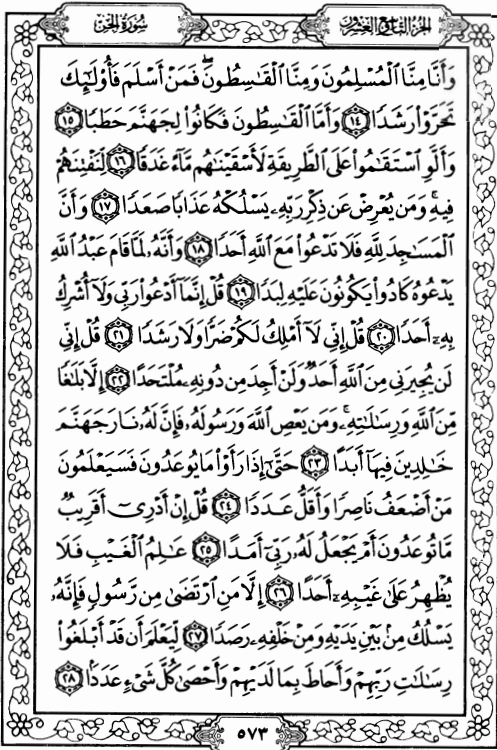 سُورَةُ الجِنِّ
الجُزْءُ التَّاسِعُ وَالعِشْرُونَ
وَأَنَّا مِنَّا ٱلْمُسْلِمُونَ وَمِنَّا ٱلْقَٰسِطُونَۖ فَمَنْ أَسْلَمَ فَأُو۟لَٰٓئِكَ
تَحَرَّوْا۟ رَشَدًا ١٤ وَأَمَّا ٱلْقَٰسِطُونَ فَكَانُوا۟ لِجَهَنَّمَ حَطَبًا ١٥
وَأَلَّوِ ٱسْتَقَٰمُوا۟ عَلَى ٱلطَّرِيقَةِ لَأَسْقَيْنَٰهُم مَّآءً غَدَقًا ١٦ لِّنَفْتِنَهُمْ
فِيهِۚ وَمَن يُعْرِضْ عَن ذِكْرِ رَبِّهِۦ يَسْلُكْهُ عَذَابًا صَعَدًا ١٧ وَأَنَّ
ٱلْمَسَٰجِدَ لِلَّهِ فَلَا تَدْعُوا۟ مَعَ ٱللَّهِ أَحَدًا ١٨ وَأَنَّهُۥ لَمَّا قَامَ عَبْدُ ٱللَّهِ
يَدْعُوهُ كَادُوا۟ يَكُونُونَ عَلَيْهِ لِبَدًا ١٩ قُلْ إِنَّمَآ أَدْعُوا۟ رَبِّى وَلَآ أُشْرِكُ
بِهِۦٓ أَحَدًا ٢٠ قُلْ إِنِّى لَآ أَمْلِكُ لَكُمْ ضَرًّا وَلَا رَشَدًا ٢١ قُلْ إِنِّى
لَن يُجِيرَنِى مِنَ ٱللَّهِ أَحَدٌ وَلَنْ أَجِدَ مِن دُونِهِۦ مُلْتَحَدًا ٢٢ إِلَّا بَلَٰغًا
مِّنَ ٱللَّهِ وَرِسَٰلَٰتِهِۦۚ وَمَن يَعْصِ ٱللَّهَ وَرَسُولَهُۥ فَإِنَّ لَهُۥ نَارَ جَهَنَّمَ
خَٰلِدِينَ فِيهَآ أَبَدًا ٢٣ حَتَّىٰٓ إِذَا رَأَوْا۟ مَا يُوعَدُونَ فَسَيَعْلَمُونَ
مَنْ أَضْعَفُ نَاصِرًا وَأَقَلُّ عَدَدًا ٢٤ قُلْ إِنْ أَدْرِىٓ أَقَرِيبٌ
مَّا تُوعَدُونَ أَمْ يَجْعَلُ لَهُۥ رَبِّىٓ أَمَدًا ٢٥ عَٰلِمُ ٱلْغَيْبِ فَلَا
يُظْهِرُ عَلَىٰ غَيْبِهِۦٓ أَحَدًا ٢٦ إِلَّا مَنِ ٱرْتَضَىٰ مِن رَّسُولٍ فَإِنَّهُۥ
يَسْلُكُ مِنۢ بَيْنِ يَدَيْهِ وَمِنْ خَلْفِهِۦ رَصَدًا ٢٧ لِّيَعْلَمَ أَن قَدْ أَبْلَغُوا۟
رِسَٰلَٰتِ رَبِّهِمْ وَأَحَاطَ بِمَا لَدَيْهِمْ وَأَحْصَىٰ كُلَّ شَىْءٍ عَدَدًۢا ٢٨
٥٧٣